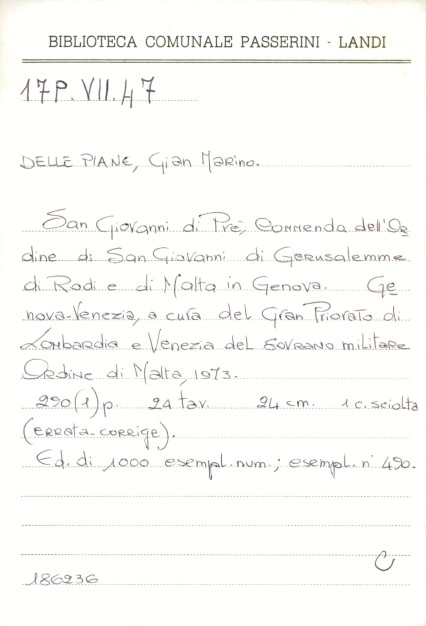 BIBLIOTECA COMUNALE PASSERINI - LANDI
17P.VII.47
DELLE PIANE, Gian Marino.
San Giovanni di Prè, Commenda dell'Or
dine di San Giovanni di Gerusalemme
di Rodi e di Malta in Genova. Ge
nova-Venezia, a cura del Gran Priorato di
Lombardia e Venezia del sovrano militare
Ordine di Malta, 1973.
290(1)p. 24 tav. 24 cm. 1 c. sciolta
(errata-corrige).
Ed. di 1000 esempl. num.; esempl. n° 490.
C
186236